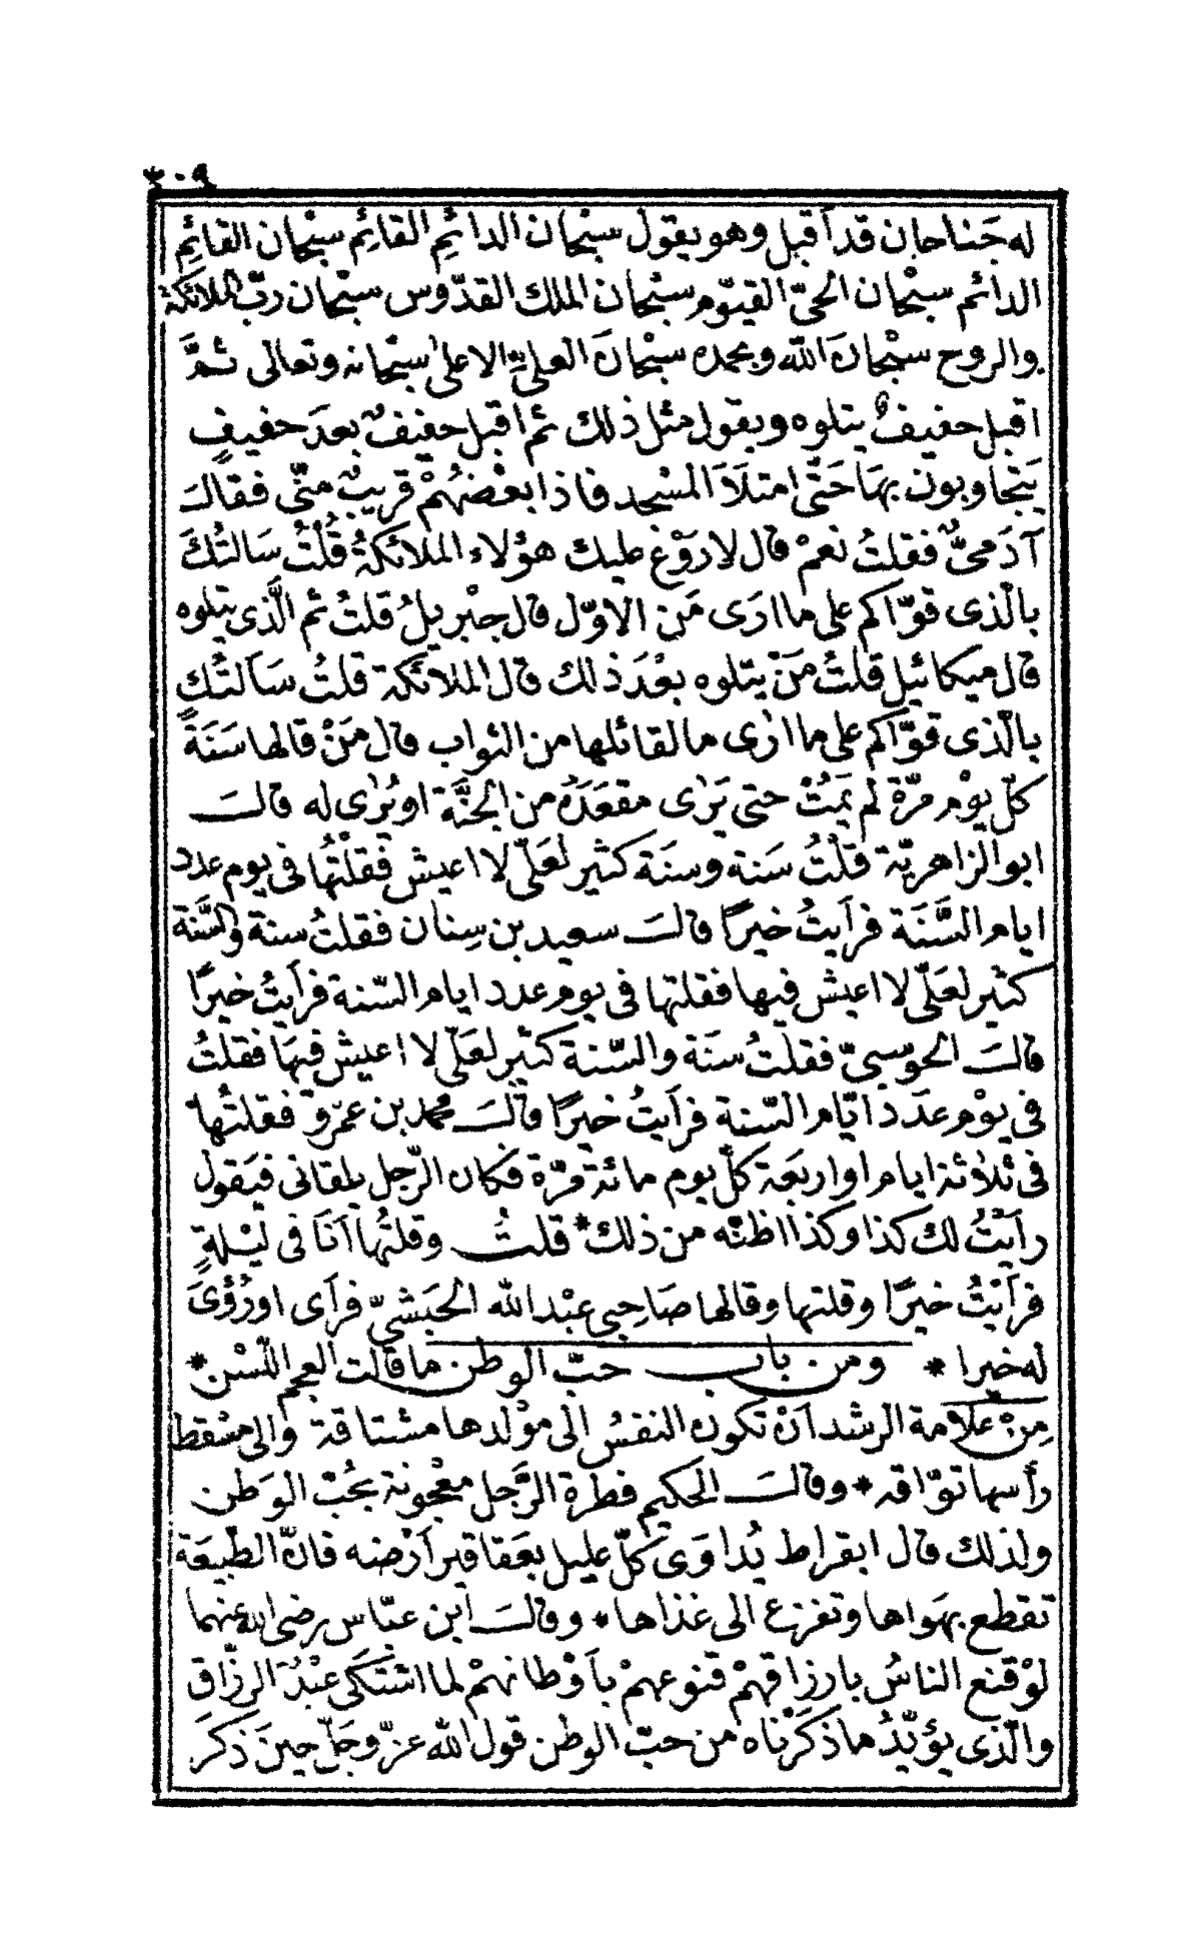 ٣٠٩
له جَناحان قد أقبل وهو يقول سبْحان الدائمِ القائِم سبْحان القائِمِ
الدائم سبْحان الحىّ القيّوم سبْحان الملك القدّوس سبْحان ربّ الملائكة
والروح سبْحانَ الله وبحمده سبْحانَ العلىِّ الاعلى سبْحانه وتعالى ثمَّ
اقبل حفيفٌ يتلوه ويقول مثل ذلك ثم اقبل حفيفٌ بعدَ حفيفٍ
يتجاوبون بهَا حَتّى امتلَأَ المسْجد فاذا بعْضهُمْ قريبٌ منّى فقالَ
آدَمىٌّ فقلتُ نعمْ قال لا رَوْع عليك هؤلاء الملائكةُ قُلْتُ سَالتُكَ
بالّذى قوّاكم على ما ارَى مَن الاوّل قال جبْريلُ قلتُ ثم الَّذى يتلوه
قال ميكائيل قلتُ مَنْ يتلوه بعْدَ ذلك قال الملائكة قلتُ سَألتُك
بالّذى قوّاكم على ما ارٰى ما لقائلها من الثواب قال مَنْ قالها سَنَةً
كلّ يوْم مرّة لم يَمتْ حتى يَرٰى مقعَدَهُ من الجنَّة او يُرٰى له قالَ
ابو الزاهريّة قلْتُ سَنة وسنَة كثير لعَلّى لا اعيش فقلْتُها فى يوم عدد
ايام السَّنَة فرأيتُ خيرًا قالَ سعيد بن سِنان فقلتُ سنة والسَّنة
كثير لعَلّى لا اعيش فيها فقلتها فى يوم عدد ايام السّنة فرأيتُ خيرًا
قالَ الحوّسبىّ فقلْتُ سنَة والسّنة كثير لعَلّى لا اعيش فيهَا فقلتُ
فى يوْم عدَد ايّام السّنة فرأيتُ خيرًا قالَ محمد بن عمْرو فقلتُها
فى ثلاثة ايام او اربعَة كلّ يوم مائة مرّة فكان الرّجل يلقانى فيَقول
رأيْتُ لك كذا وكذا اظنّه من ذلك * قلتُ وقلتُها اَنَا فى ليْلةٍ
فرأيْتُ خيرًا وقلتها وقالها صَاحِبى عبْد الله الحَبَشىّ فرأى او رُؤىَ
له خيرا * ومن باب حبّ الوطن ما قالت العجم اللّسْن *
مِنْ علامة الرشد أنْ تكون النفسُ الى موْلدها مشتاقة والى مسْقط
رأسها توّاقه * وقالَ الحكيم فطرة الرَّجل معْجونة بحُبّ الوَطن
ولذلك قال ابقراط يُداوَى كلّ عليل بعَقاقير أرْضه فانّ الطّبيعَة
تقطع بهَواها وتفزع الى غذاها * وقالَ ابن عبّاس رضى الله عنهما
لوْ قنع الناسُ بارزاقهمْ قنوعهمْ بأوْطانهمْ لما اشتكى عبْدُ الرزّاقِ
والّذى يؤيّدُ ما ذكرْناه من حبّ الوطن قول الله عزّ وجَلّ حِينَ ذكَر